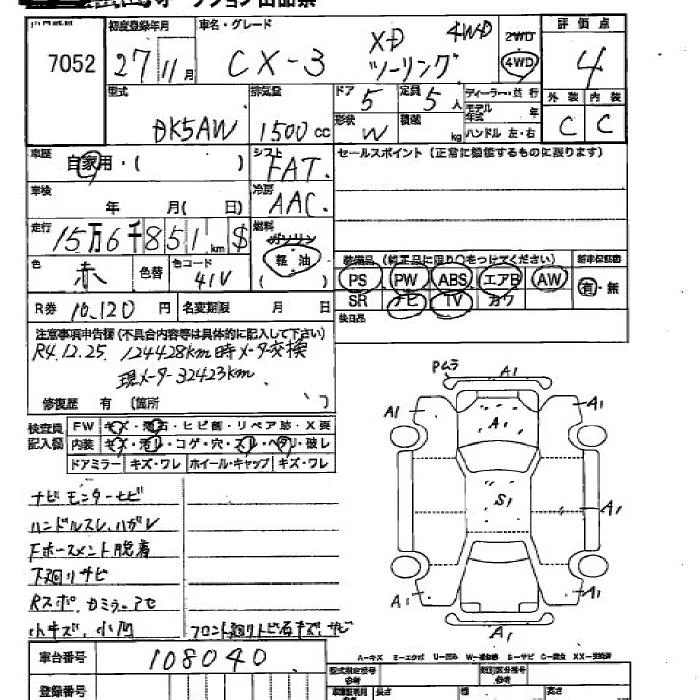 オークション出品票
7052
初度登録年月 車名・グレード 評価点
27 11月 CX-3 XD 4WD ツーリング 2WD 4WD 4
型式 排気量 ドア 5 定員 5人 ディーラー・並行 外装 内装
DK5AW 1500cc 形状 W 積載 kg モデル年式 年 ハンドル 左・右 C C
車歴 自家用・( ) シフト FAT. セールスポイント (正常に機能するものに限ります)
車検 年 月( 日) 冷房 AAC.
走行 15万6千851km $ 燃料 ガソリン 軽油 ( )
装備品 (純正品に限り○をつけてください) 新車保証書
色 赤 色替 色コード 41V PS PW ABS エアB AW 有・無
SR ナビ TV カワ
R券 10,120円 名変期限 月 日 後日品
注意事項申告欄 (不具合内容等は具体的に記入して下さい)
R4.12.25. 124428km時メータ交換
現メーター32423km
修復歴 有 (箇所 )
検査員記入欄 FW キズ・飛石・ヒビ割・リペア跡・X要
内装 キズ・汚れ・コゲ・穴・スレ・ヘタリ・破レ
ドアミラー キズ・ワレ ホイール・キャップ キズ・ワレ
Pムラ A1
A1 A1 A1
S1 A1
A1 A1
A1
ナビモニターサビ
ハンドルスレ、ハガレ
Fホースメント脱着
下廻りサビ
Rスポ、カミラーアセ
小キズ、小凹 フロント廻りトビ石キズ、サビ
A-キズ E-エクボ U-凹み W-補修跡 S-サビ C-腐食 XX-交換済
車台番号 108040 型式指定番号 類別区分番号
登録番号 参考 長さ 幅 高さ